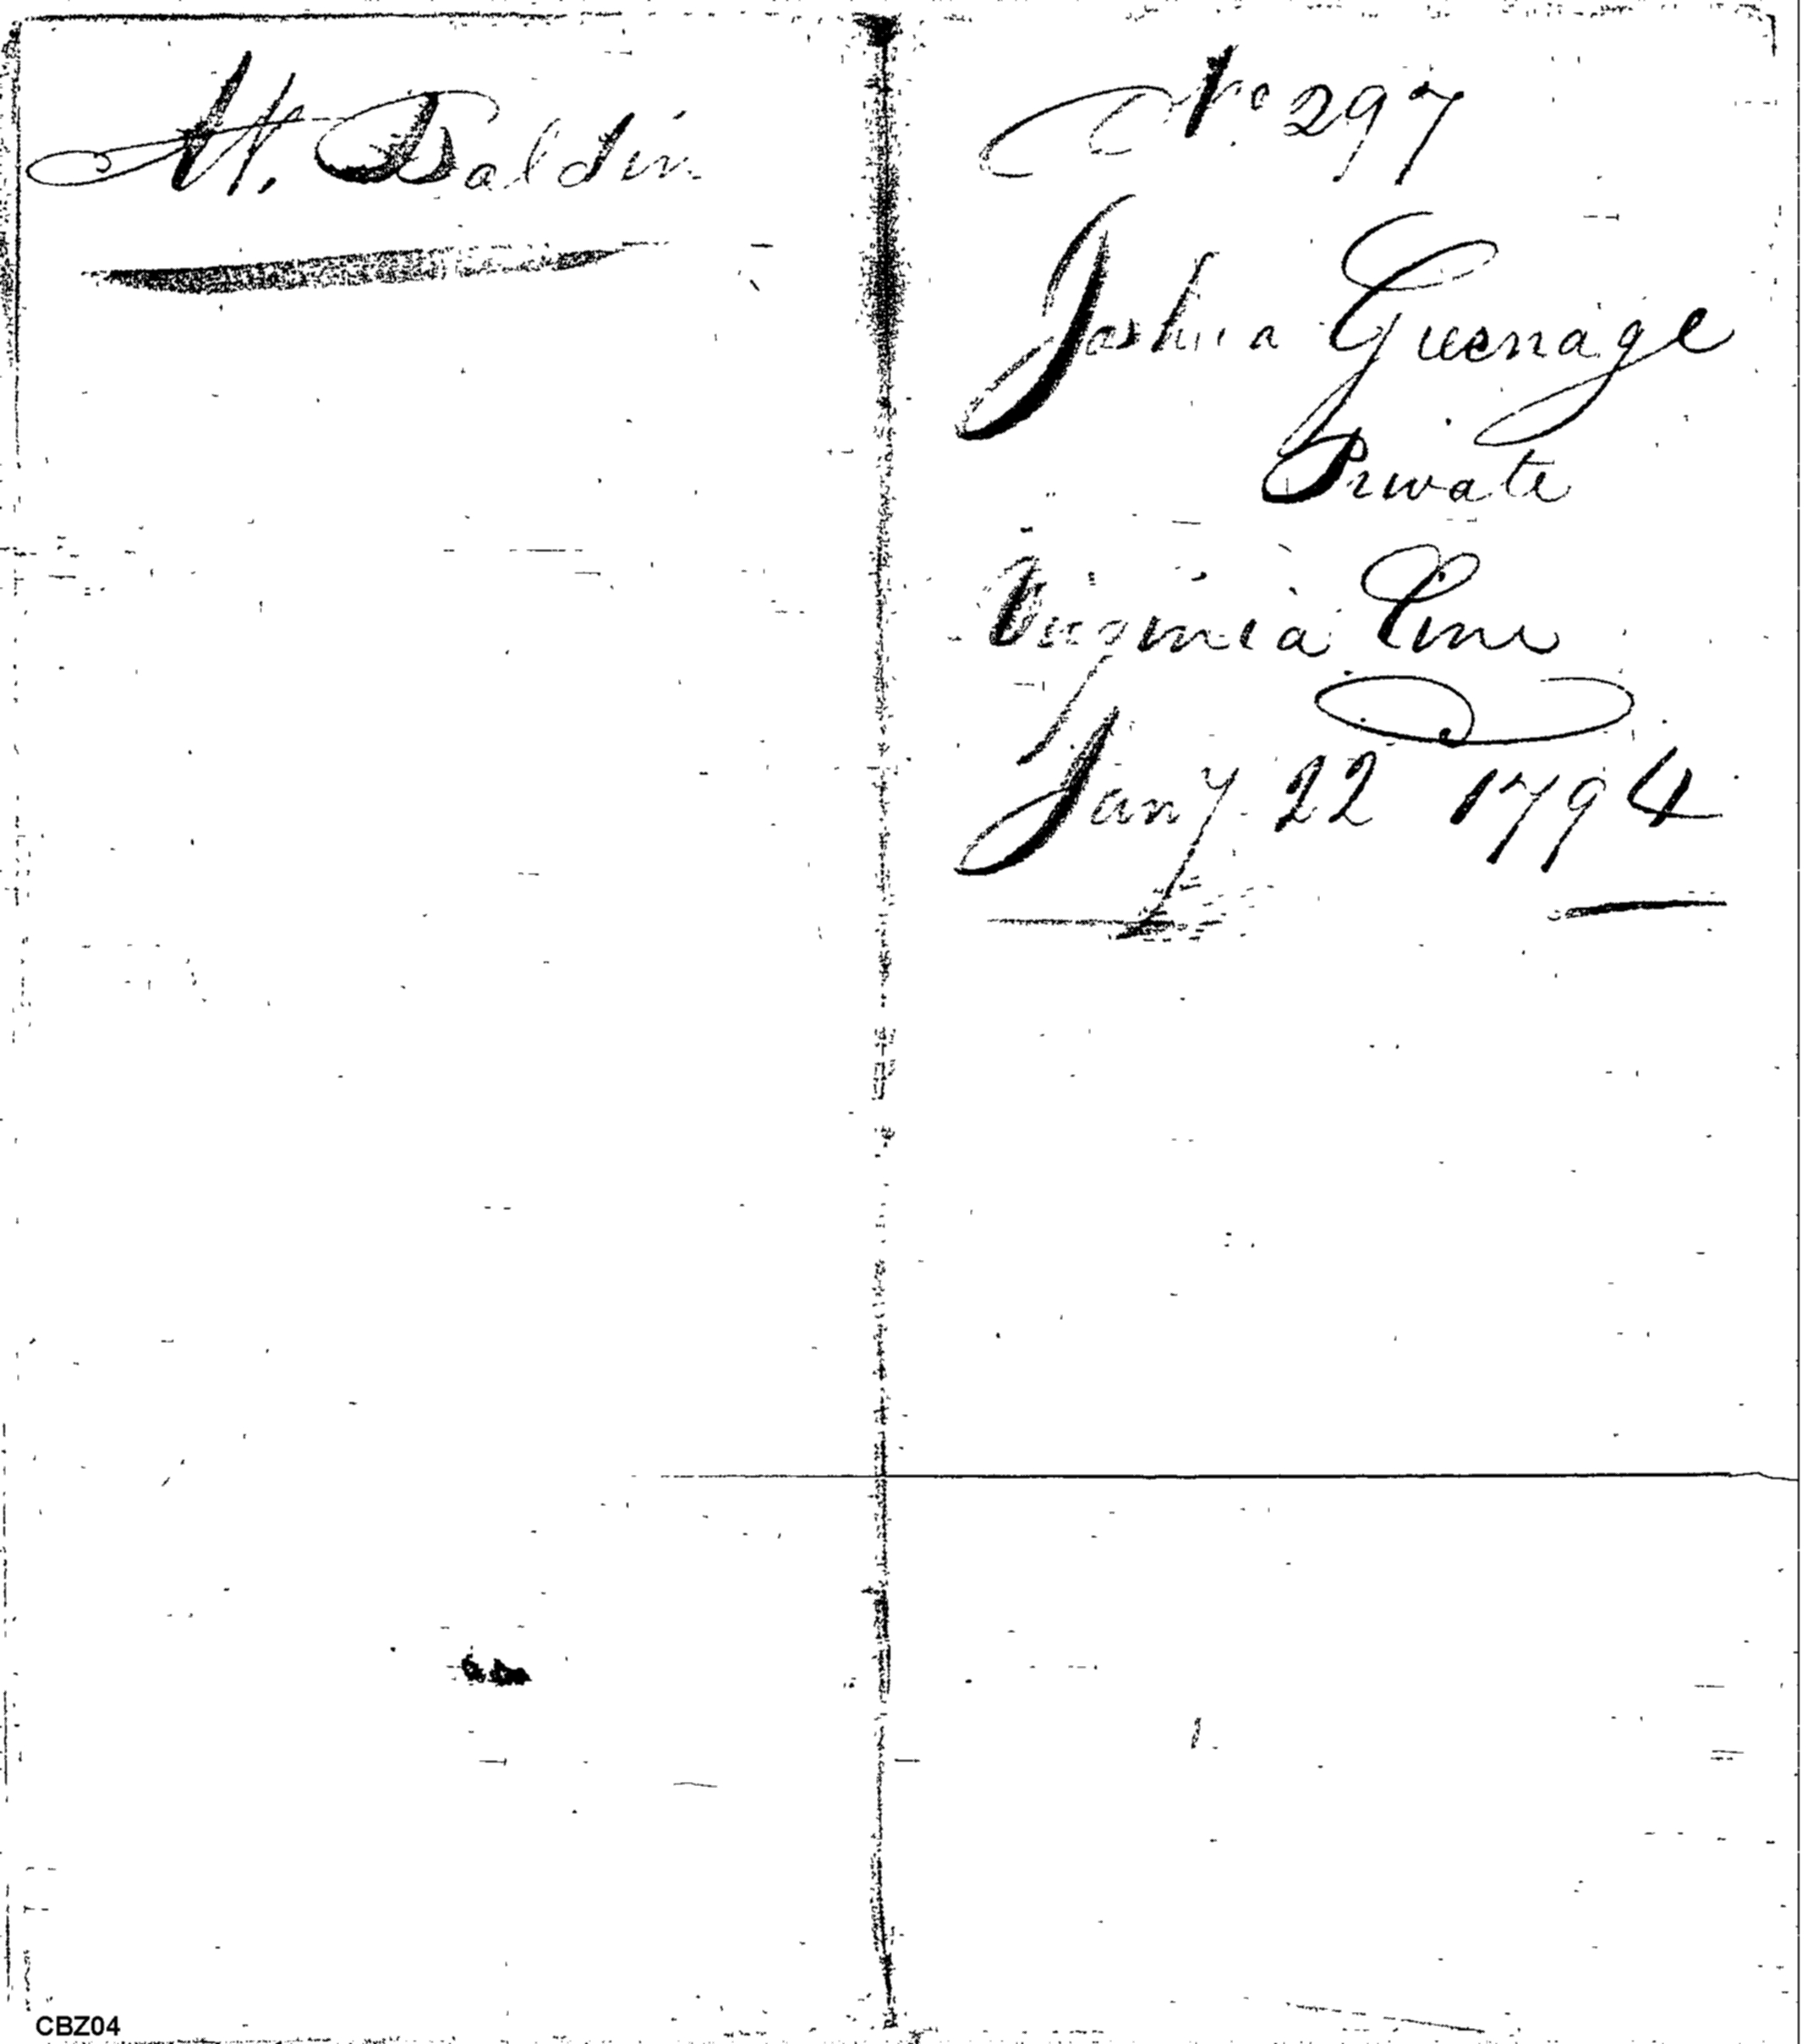 M. Baldin
No 297
Joshua Guenage
Private
Virginia Line
Jany 22 1794
CBZ04